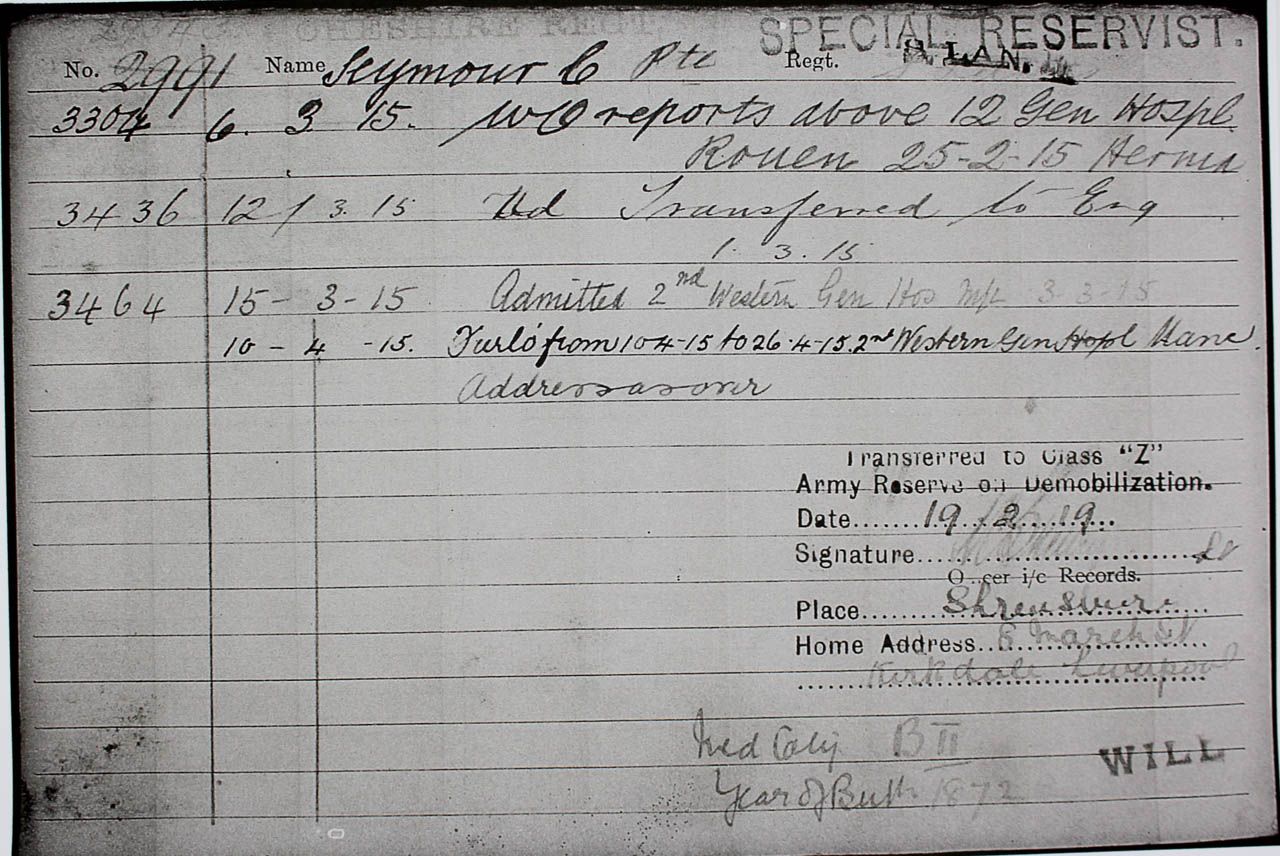 CHESHIRE REGT
SPECIAL RESERVIST.
No. 2991 Name Seymour C Pte Regt. S. LAN.
3304 6. 3. 15. WO reports above 12 Gen Hospl
Rouen 25-2-15 Hernia
3436 12/3.15 Transferred to Eng
1.3.15
3464 15-3-15 Admitted 2nd Western Gen Hos 3-3-15
10-4-15. Furlo' from 10-4-15 to 26.4-15. 2nd Western Gen Hospl Manc.
Address as over
Transferred to Class "Z"
Army Reserve on Demobilization.
Date.......19..2...19...
Signature
Officer i/c Records.
Place.......Shrewsbury
Home Address..8 March St
Kirkdale Liverpool
Med Catg B II
WILL
Year of Birth 1872